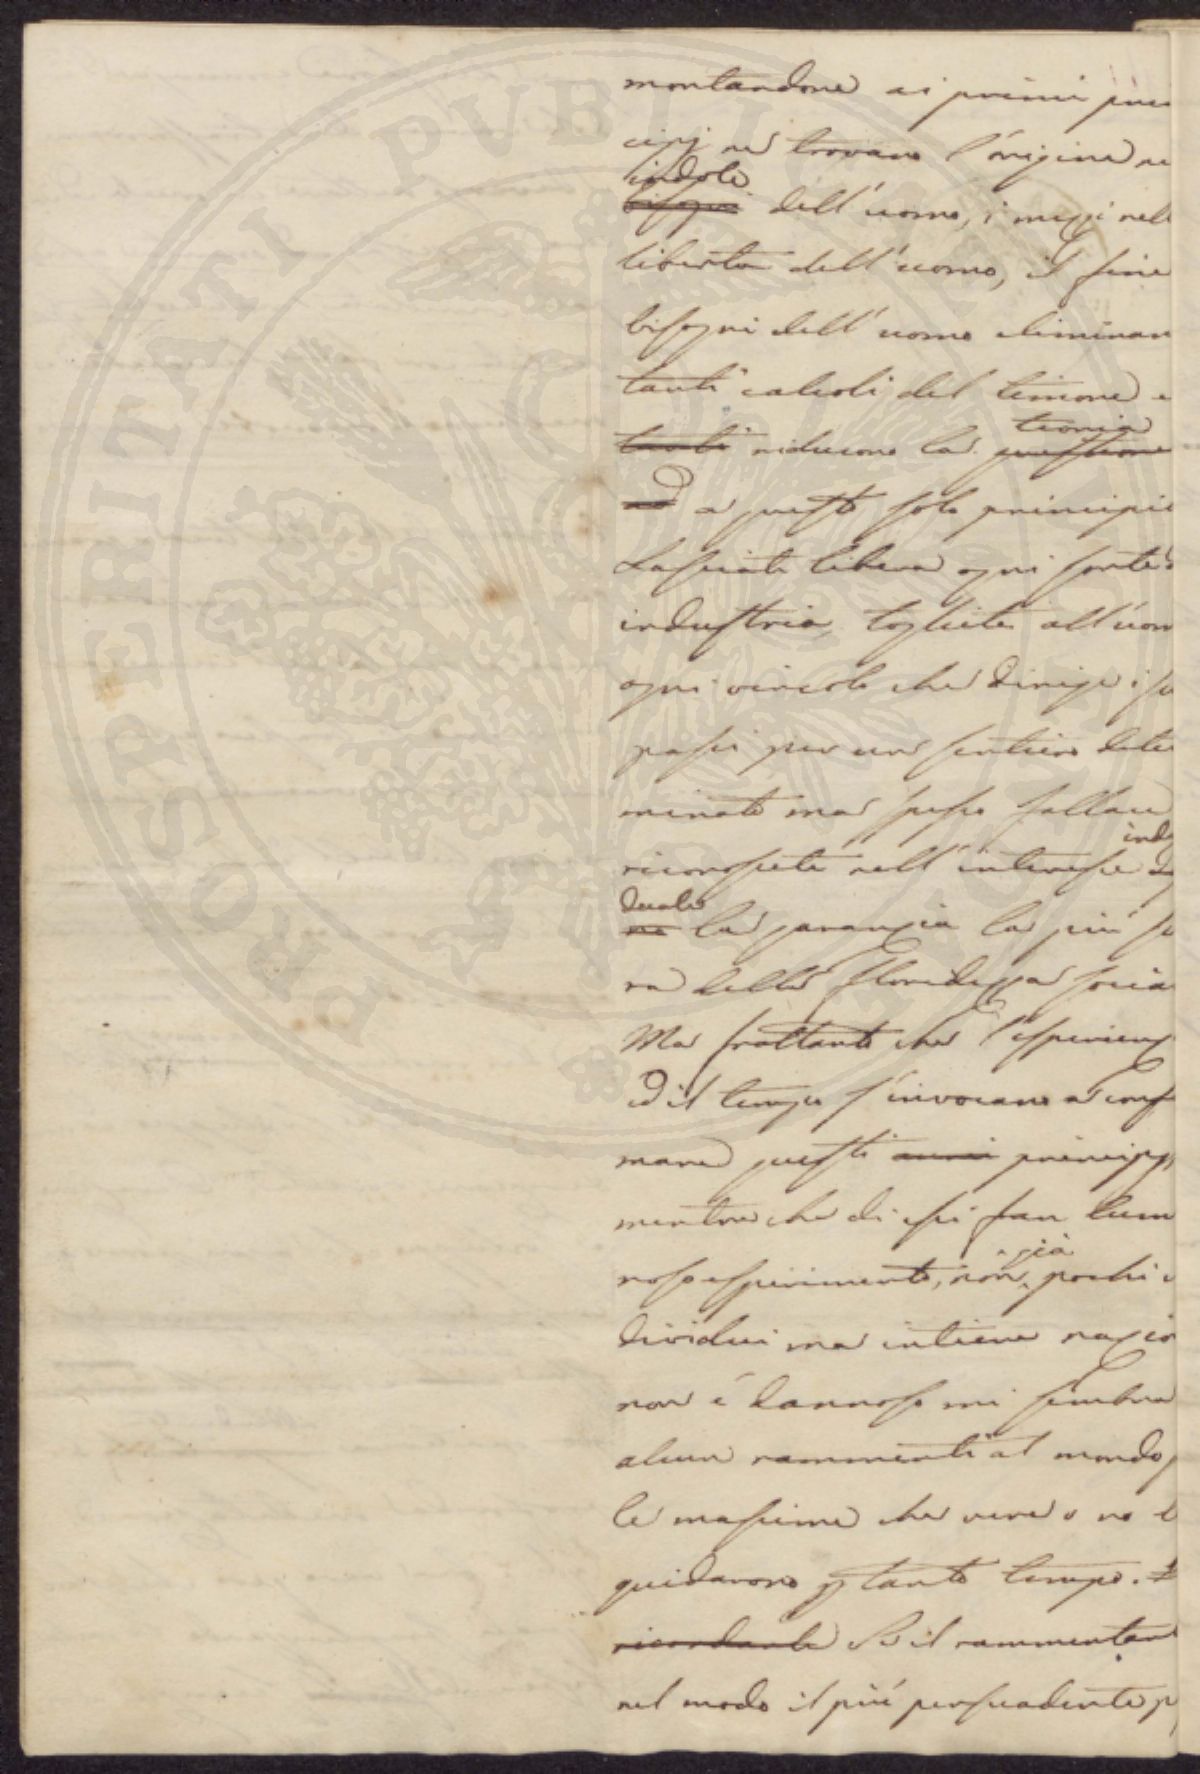 montandone ai primi prin
cipj ne trovano l'origine ne
indole
bisogni dell'uomo, i mezzi nel
libertà dell'uomo, il fine
bisogni dell'uomo eliminan
tanti calcoli del timone e
teoria
tanti riducono la questione
ad a questo solo principio
Lasciate libera ogni sorte
industria, togliete all'uom
ogni vincolo che dirige i su
passi per un sentiero dete
minato ma spesso fallace
indi
riconoscete nell'interesse
duale
no la garanzia la più si
ra della floridezza socia
Ma frattanto che l'esperienz
ed il tempo s'invocano a conf
mare questi principj,
mentre che di essi fan lum
noso esperimento, non pochi
già
dividui ma intiere nazio
non è dannoso mi sembra
alcun rammenti al mondo
le massime che vere o no l
guidarono p tanto tempo.
ricordarle Se il rammentar
nel modo il più persuadente p
PUBLICAE PROSPERITATI